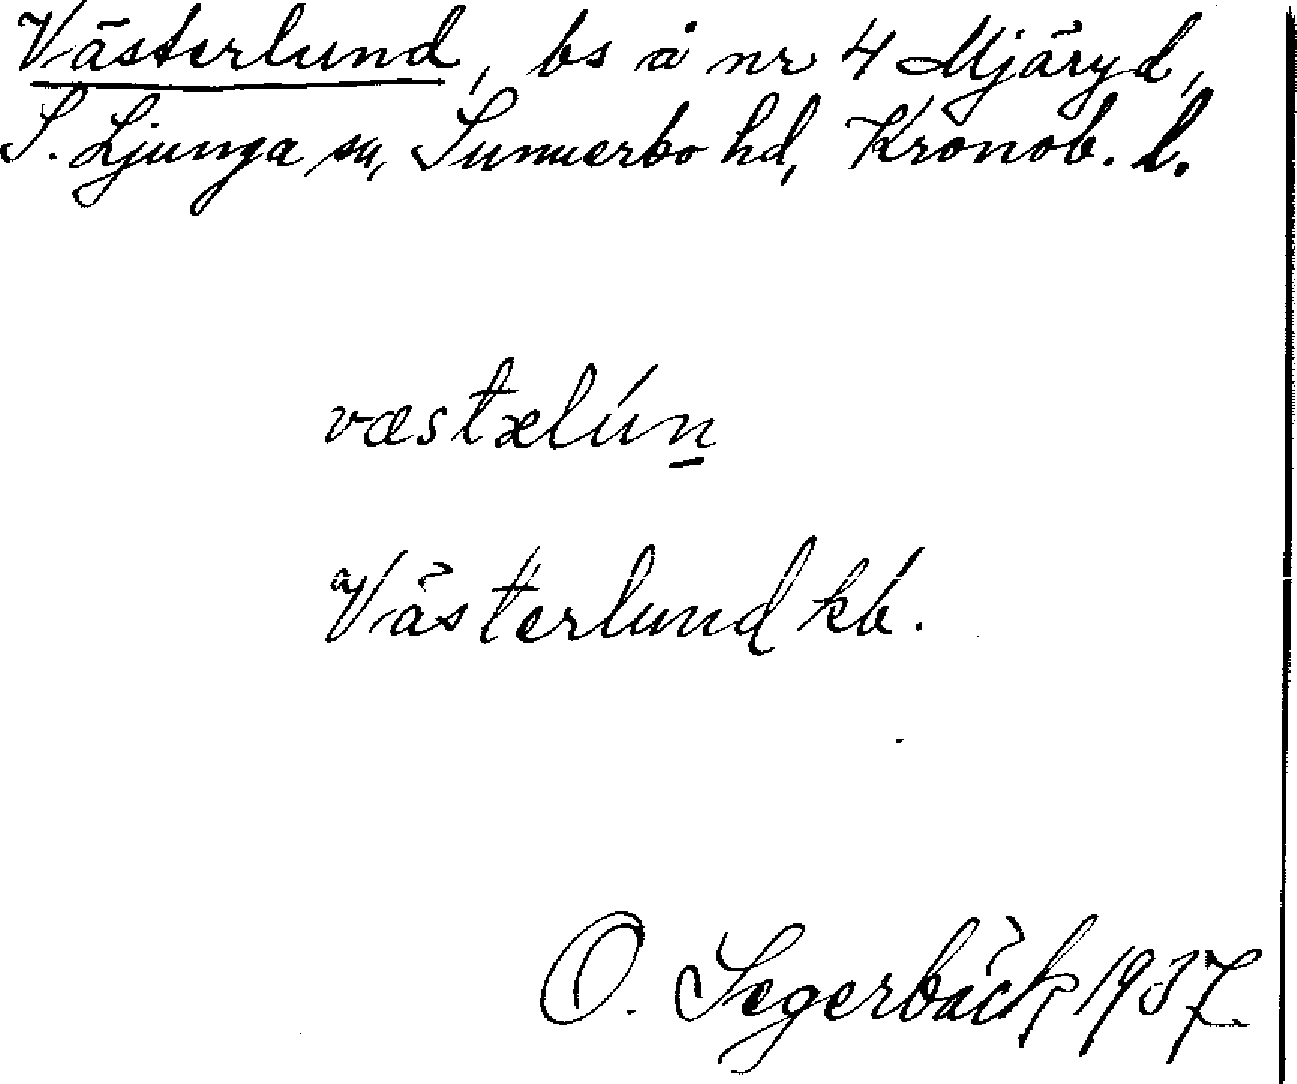 Västerlund, bs å nr 4 Mjäryd,
S. Ljunga sn, Sunnerbo hd, Kronob. l.
væstælún̲
Västerlund kb.
O. Segerbäck 1937